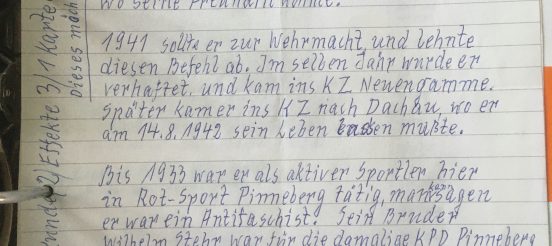 wo seine Freundin wohnte.
1941 sollte er zur Wehrmacht, und lehnte
diesen Befehl ab. Im selben Jahr wurde er
verhaftet, und kam ins KZ Neuengamme.
Später kam er ins KZ nach Dachau, wo er
am 14.8.1942 sein Leben lassen mußte.
Bis 1933 war er als aktiver Sportler hier
in Rot-Sport Pinneberg tätig, man kann sagen
er war ein Antifaschist. Sein Bruder
Wilhelm Stehr war für die damalige KPD Pinneberg
Effekte 3/1 Karte
Dieses möch